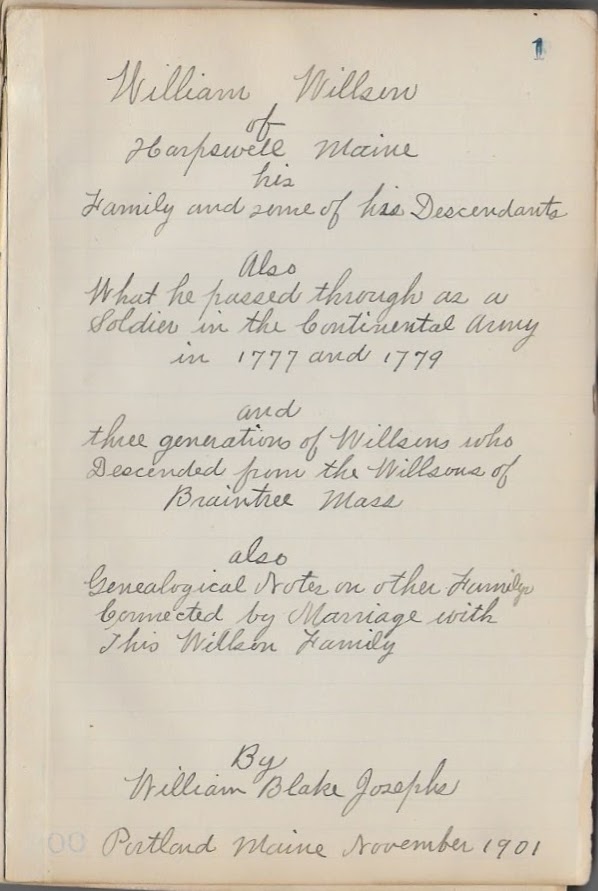 1
William Willson
of
Harpswell Maine
his
Family and some of his Descendants
Also
What he passed through as a
Soldier in the Continental Army
in 1777 and 1779
and
three generations of Willsons who
Descended from the Willsons of
Braintree Mass
also
Genealogical Notes on other Familys
Connected by Marriage with
This Willson Family
By
William Blake Josephs
Portland Maine November 1901